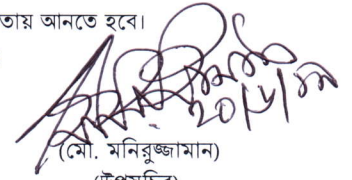 তায় আনতে হবে।
২০/৮/১৯
(মো. মনিরুজ্জামান)
(উপসচিব)